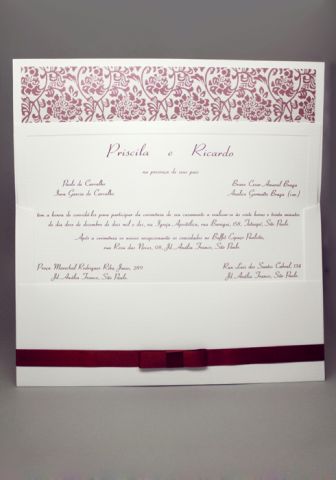 Priscila e Ricardo
na presença de seus pais
Paulo de Carvalho Bruno Cesar Amaral Braga
Garcia de Carvalho Braga
tem a honra de convidá-los para participar da cerimônia de seu casamento a realizar-se às vinte horas e trinta minutos
do dia dez de dezembro de dois mil e dez, na Igreja Apostólica, rua 158, Tatuapé, São Paulo.
Após a cerimônia os noivos recepcionarão os convidados no Buffet Espaço Paulista,
rua das Noivas, 08, Jd. Anália Franco, São Paulo.
Praça Marechal Rodrigues 289 Rua Luis dos Santos Cabral, 134
Jd. Anália Franco, São Paulo Jd. Anália Franco, São Paulo